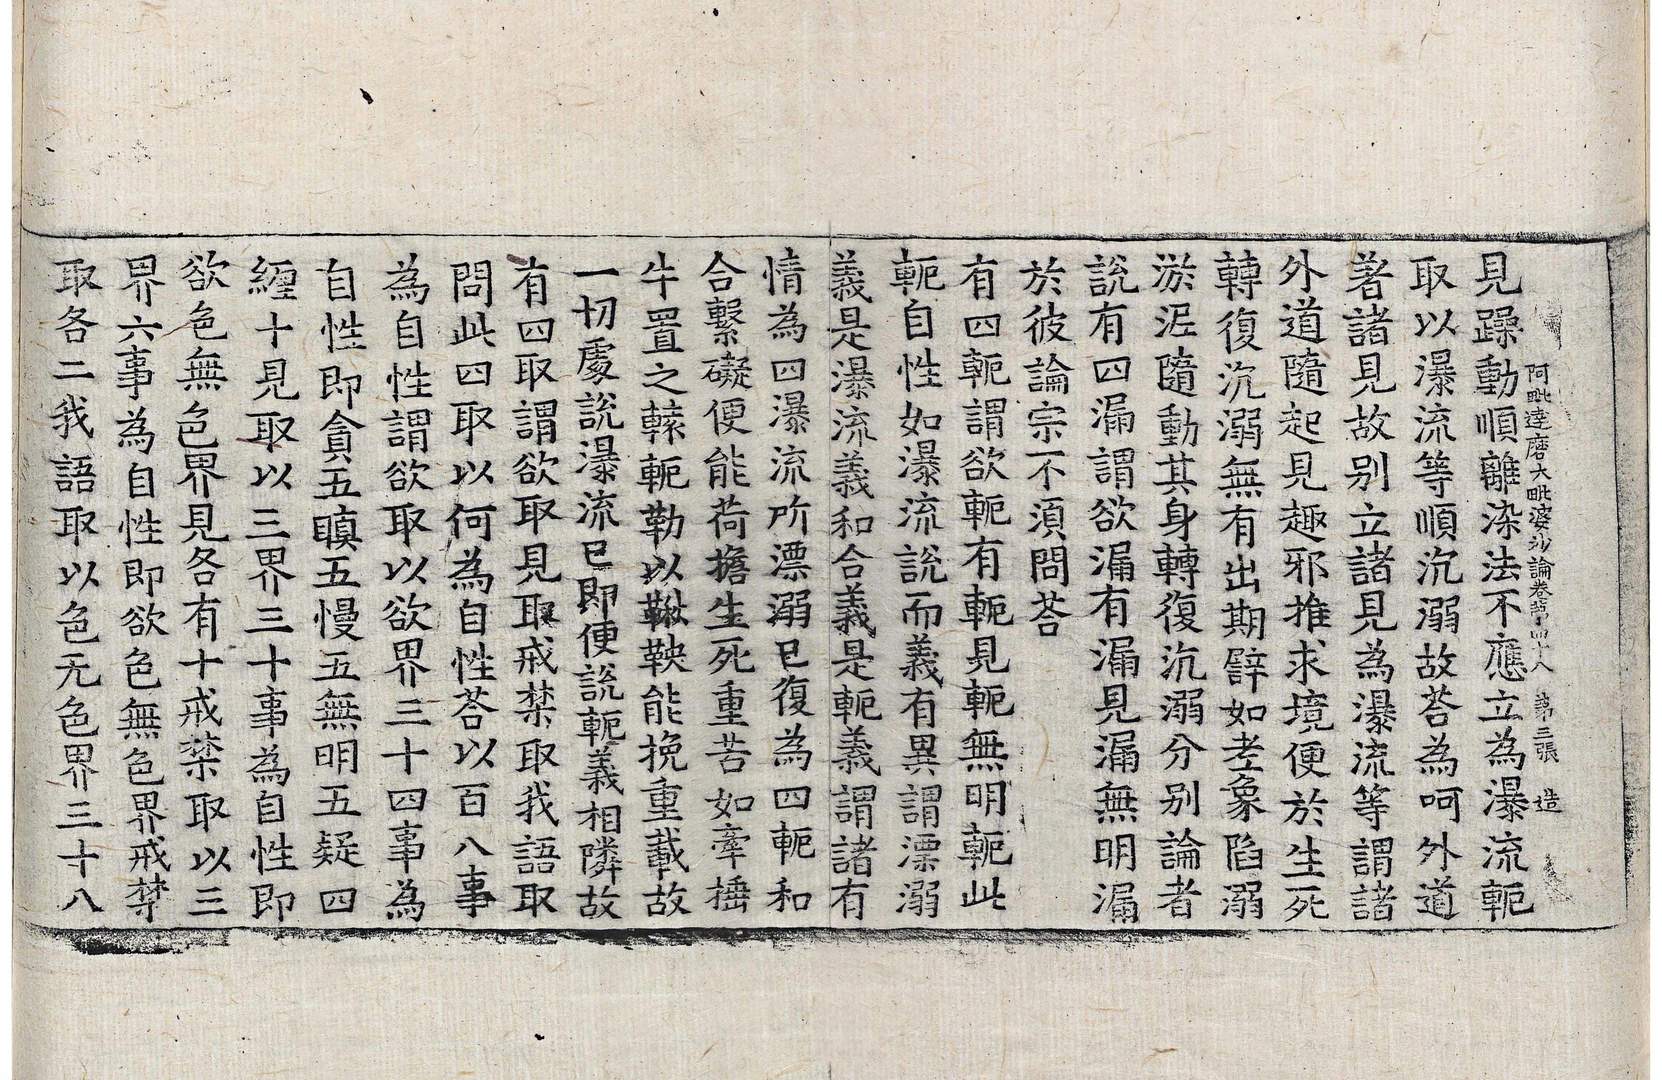 阿毗達磨大毗婆沙論卷苐四十八 苐三張 造
見躁動順離染法不應立為瀑流軛
取以瀑流等順沉溺故荅為呵外道
著諸見故别立諸見為瀑流等謂諸
外道隨起見趣邪推求境便於生死
轉復沉溺無有出期譬如老象陷溺
淤泥隨動其身轉復沉溺分别論者
說有四漏謂欲漏有漏見漏無明漏
於彼論宗不須問荅
有四軛謂欲軛有軛見軛無明軛此
軛自性如瀑流說而義有異謂漂溺
義是瀑流義和合義是軛義謂諸有
情為四瀑流所漂溺已復為四軛和
合繫礙便能荷擔生死重苦如牽捶
牛置之轅軛勒以鞦鞅能挽重載故
一切處說瀑流已即便說軛義相隣故
有四取謂欲取見取戒禁取我語取
問此四取以何為自性荅以百八事
為自性謂欲取以欲界三十四事為
自性即貪五瞋五慢五無明五疑四
纏十見取以三界三十事為自性即
欲色無色界見各有十戒禁取以三
界六事為自性即欲色無色界戒禁
取各二我語取以色无色界三十八